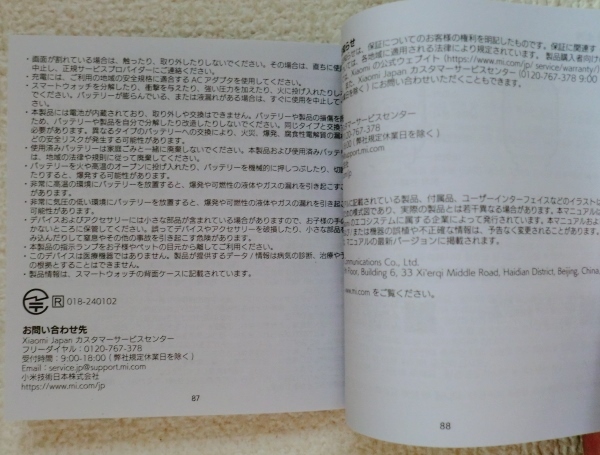 ・画面が割れている場合は、触ったり、取り外したりしないでください。その場合は、直ちに使
中止し、正規サービスプロバイダーにご連絡ください。
・充電には、ご利用の地域の安全規格に適合する AC アダプタを使用してください。
・スマートウォッチを分解したり、衝撃を与えたり、強い圧力を加えたり、火に投げ入れたりし
でください。バッテリーが膨らんでいる、または液漏れがある場合は、すぐに使用を中止して
さい。
・本製品には電池が内蔵されており、取り外しや交換はできません。バッテリーや製品の損傷を
ため、バッテリーや製品を自分で分解したり改造したりしないでください。同じタイプと交換
必要があります。異なるタイプのバッテリーへの交換により、火災、爆発、腐食性電解質の漏
どの安全リスクが発生する可能性があります。
・使用済みバッテリーは家庭ごみと一緒に廃棄しないでください。本製品および使用済みバッテ
は、地域の法律や規則に従って廃棄してください。
・バッテリーを火や高温のオーブンに投げ入れたり、バッテリーを機械的に押しつぶしたり、切
たりすると、爆発する可能性があります。
・非常に高温の環境にバッテリーを放置すると、爆発や可燃性の液体やガスの漏れを引き起こす
があります。
・非常に気圧の低い環境にバッテリーを放置すると、爆発や可燃性の液体やガスの漏れを引き起
可能性があります。
・デバイスおよびアクセサリーには小さな部品が含まれている場合がありますので、お子様の手
かないところに保管してください。誤ってデバイスやアクセサリを破損したり、小さな部品を
み込んだりして窒息やその他の事故を引き起こす危険があります。
・本製品の指示ランプをお子様やペットの目元から離してご利用ください。
・このデバイスは医療機器ではありません。製品が提供するデータ / 情報は病気の診断、治療や予
の根拠とすることはできません。
・製品情報は、スマートウォッチの背面ケースに記載されています。
R 018-240102
お問い合わせ先
Xiaomi Japan カスタマーサービスセンター
フリーダイヤル：0120-767-378
受付時間：9:00-18:00 ( 弊社規定休業日を除く )
Email：service.jp@support.mi.com
小米技術日本株式会社
https://www.mi.com/jp
87
らせ
は、保証についてのお客様の権利を明記したものです。保証に関連す
は、各地域に適用される法律により規定されています。製品購入者向け
Xiaomi の公式ウェブイト (https://www.mi.com/jp/ service/warranty/)
Xiaomi Japan カスタマーサービスセンター (0120-767-378 9:00
を除く ) にお問い合わせいただくこともできます。
タマーサービスセンター
0-767-378
( 弊社規定休業日を除く )
support.mi.com
社
jp
に記載されている製品、付属品、ユーザーインターフェイスなどのイラストは
の模式図であり、実際の製品とは若干異なる場合があります。本マニュアル
エコシステムに属する企業によって発行されています。本マニュアルおよ
または機器の誤植や不正確な情報は、予告なく変更されることがあります。
ニュアルの最新バージョンに掲載されます。
mmunications Co., Ltd.
Floor, Building 6, 33 Xi'erqi Middle Road, Haidian District, Beijing, China.
www.mi.com をご覧ください。
88